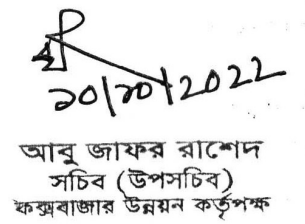 ১০/১০/2022
আবু জাফর রাশেদ
সচিব (উপসচিব)
কক্সবাজার উন্নয়ন কর্তৃপক্ষ